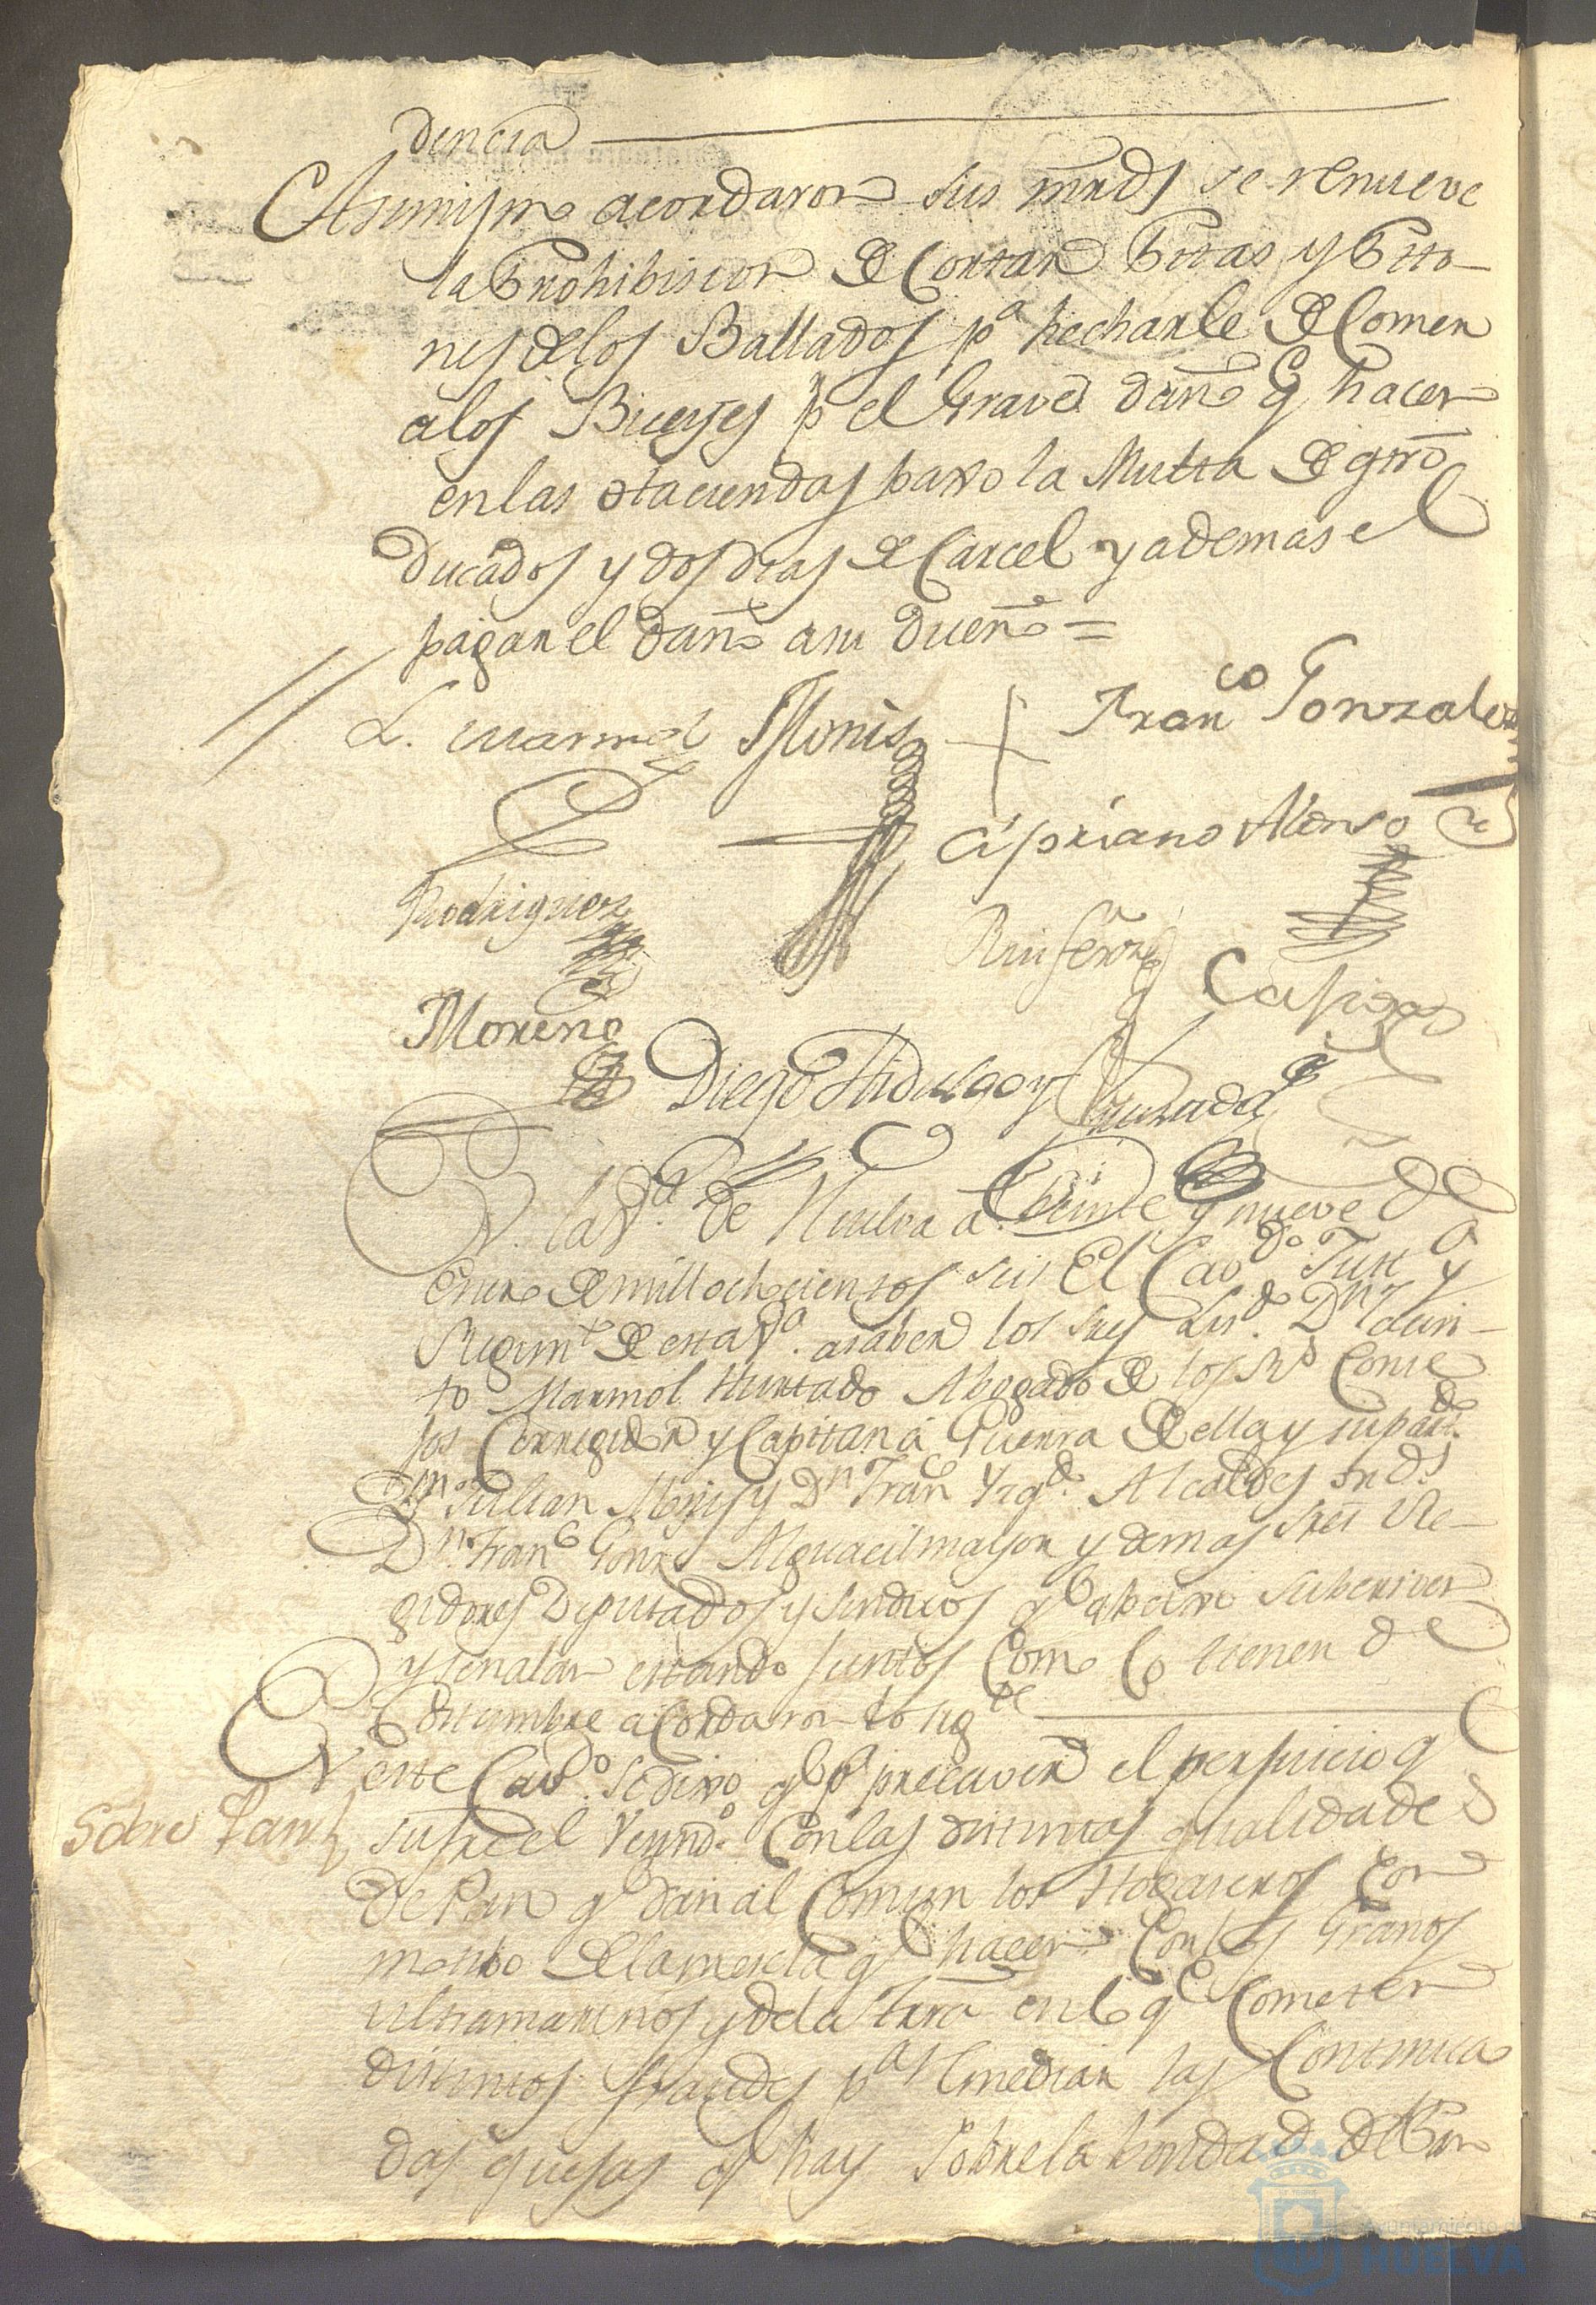 dencia
Asimismo acordaron sus mrds se renueve
la Prohibision de Cortar Pitas y Pito-
nes de los Ballados pa hecharle de Comer
a los Bueyes p el Grave dañо q hacen
en las Haciendas baxo la Multa de qtrо
Ducados y dos dias de Carcel y ademas el
pagar el daño a su Dueño =
L. Marmol Monis Franco Gonzalez
Cipriano Alonso
Rodriguez
Casiga
Moreno
Diego Hidalgo y Hurtado
En la Va de Huelva a Veinte y nueve de
Enero de mill ochocientos seis El Cavdo Just a y
Regimto de esta Va a saber los Sres Lizdo Dn Jacin-
to Marmol Hurtado Abogado de los Rs Conse
jos Corregidor y Capitan á Guerra de ella y su partdo
Dn Julian Monis y Dn Franco Yzqdo Alcaldes ords
Dn Franco Gonzs Alguacil mayor y demas Sres Re-
gidores Diputados y Sindicos q abajo Subscriven
y señalan estando juntos Como lo tienen de
Costumbre acordaron lo sigte
En este Cavdo Se dixo q pa precaver el perjuicio q
Sobre Pan
sufre el Vecindo Con las distintas qualidades
de Pan q dan al Comun los Hogaseros Con
motivo de la mescla q hacen Con los Granos
ultramarinos y de la Trra en lo q Cometen
distintos fraudes pa Remediar las Continua
das quejas q hay Sobre la bondad del Pan
Ayuntamiento de
HUELVA